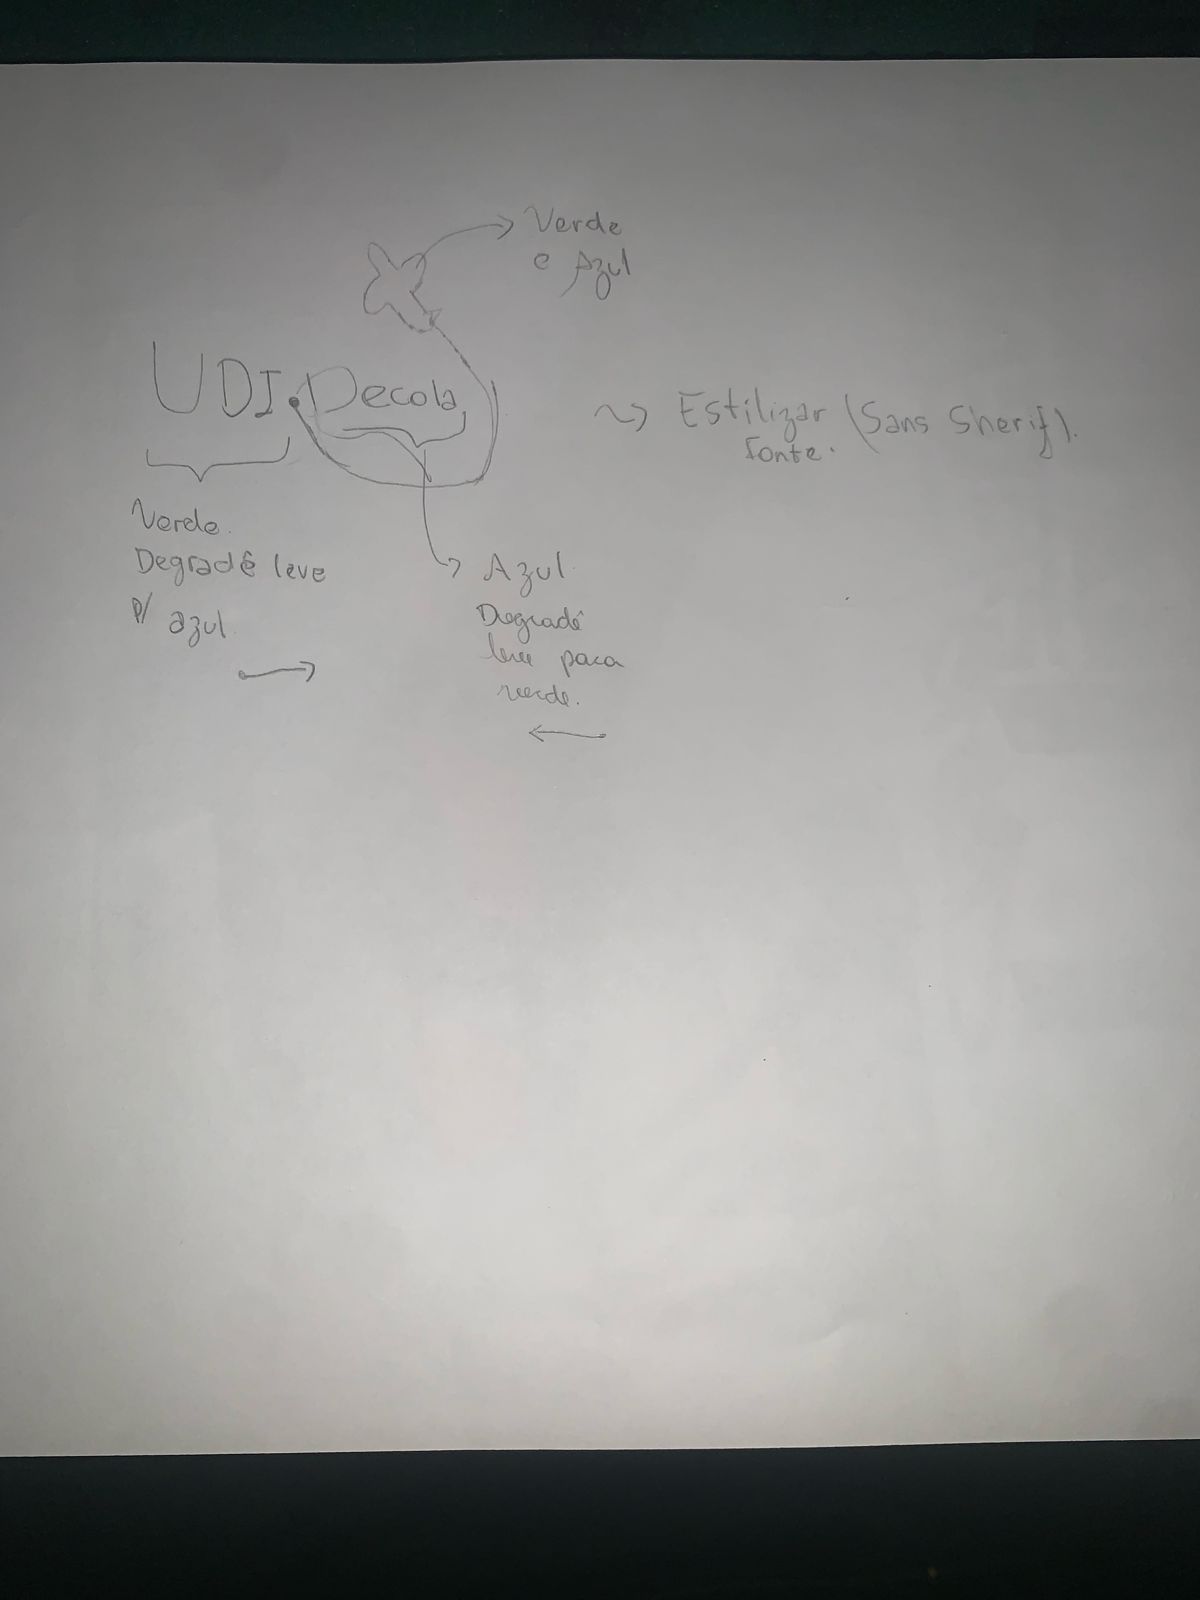 Verde
e Azul
UDI.Decola
~> Estilizar (Sans Sherif).
fonte.
Verde.
Degradê leve
p/ azul.
Azul.
Degradê
leve para
verde.